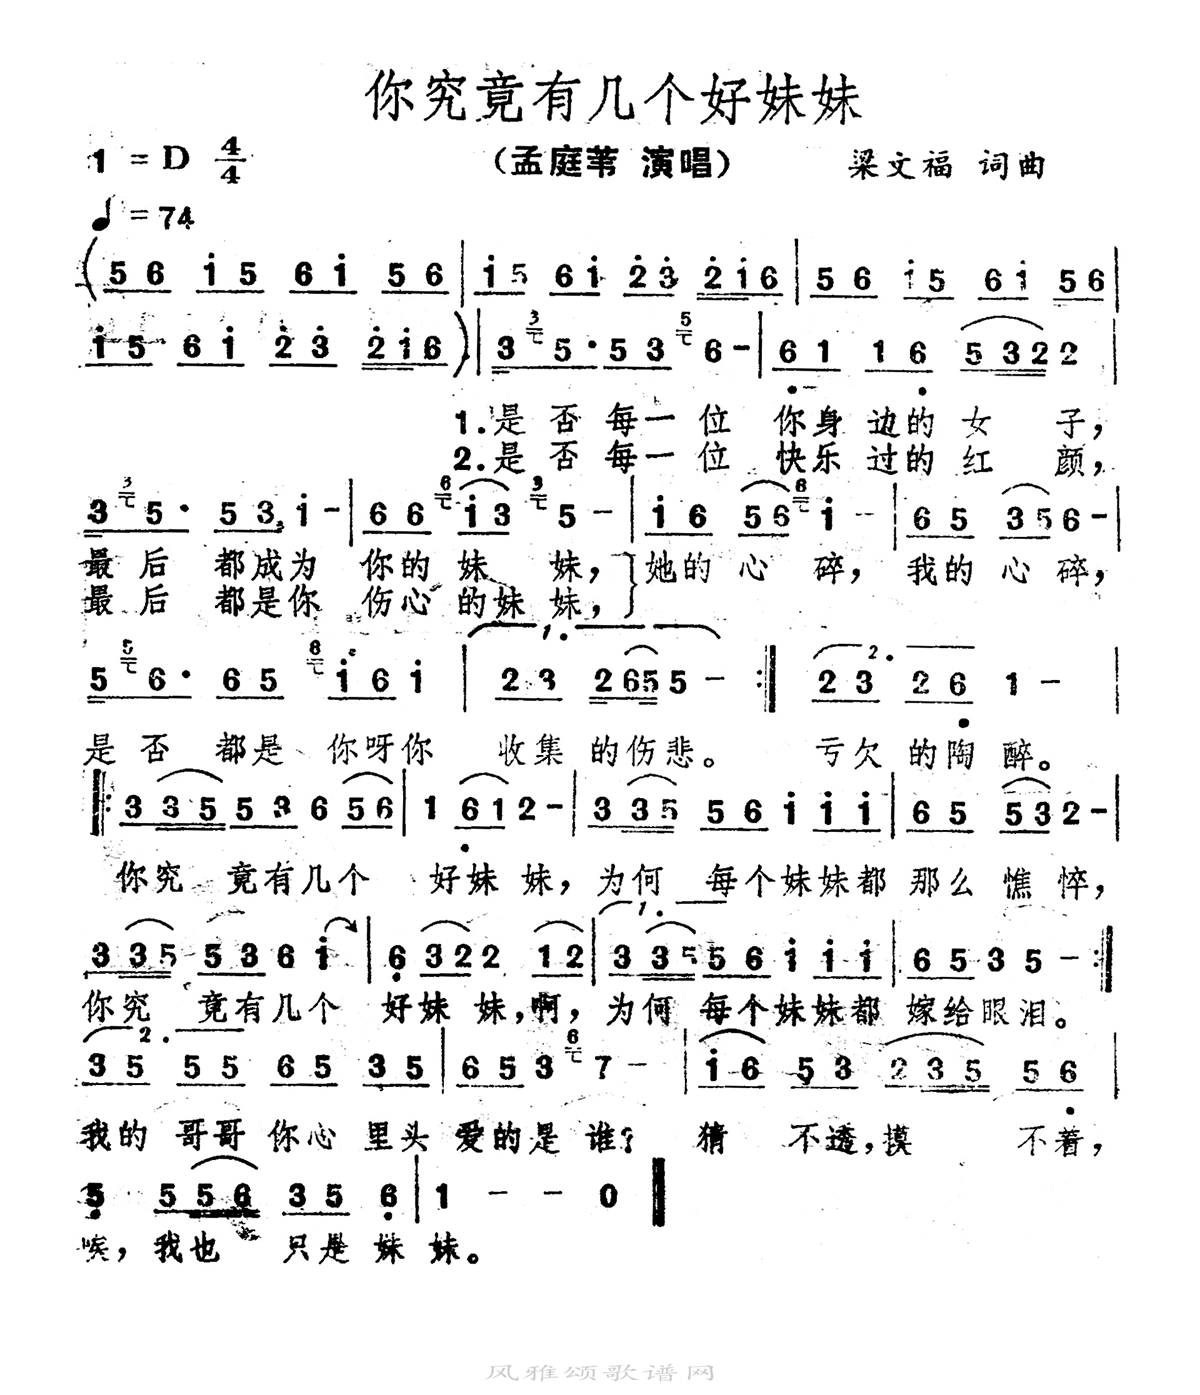 你究竟有几个好妹妹
1 = D 4/4 （孟庭苇 演唱） 梁文福 词曲
♩ = 74
(56 i5 6i 56 | i5 6i 23 2i6 | 56 i5 6i 56 |
i5 6i 23 2i6 ) | 3 5·53 6- | 61 16 5322 |
1.是否每一位 你身边的女子，
2.是否每一位 快乐过的红颜，
3 5· 53 i- | 66 i3 5- | i6 56 i- | 65 356- |
最后 都成为 你的妹妹，}她的心碎，我的心碎，
最后 都是你 伤心的妹妹，
5 6· 65 i6i | 1. 23 2655- :| 2. 23 26 1-
是否 都是 你呀你 收集的伤悲。 亏欠的陶醉。
|: 335 53 6 56 | 1 612- | 335 56 i i i | 65 532- |
你究 竟有几个 好妹妹，为何 每个妹妹都 那么憔悴，
335 536 i | 6322 12 | 1. 335 56 i i i | 6535- :|
你究 竟有几个 好妹妹，啊，为何 每个妹妹都 嫁给眼泪。
2. 35 55 65 35 | 653 7- | i6 53 235 56 |
我的哥哥你心里头 爱的是谁？ 猜不透，摸不着，
5 556 35 6 | 1 - - 0
唉，我也 只是妹妹。
风雅颂歌谱网